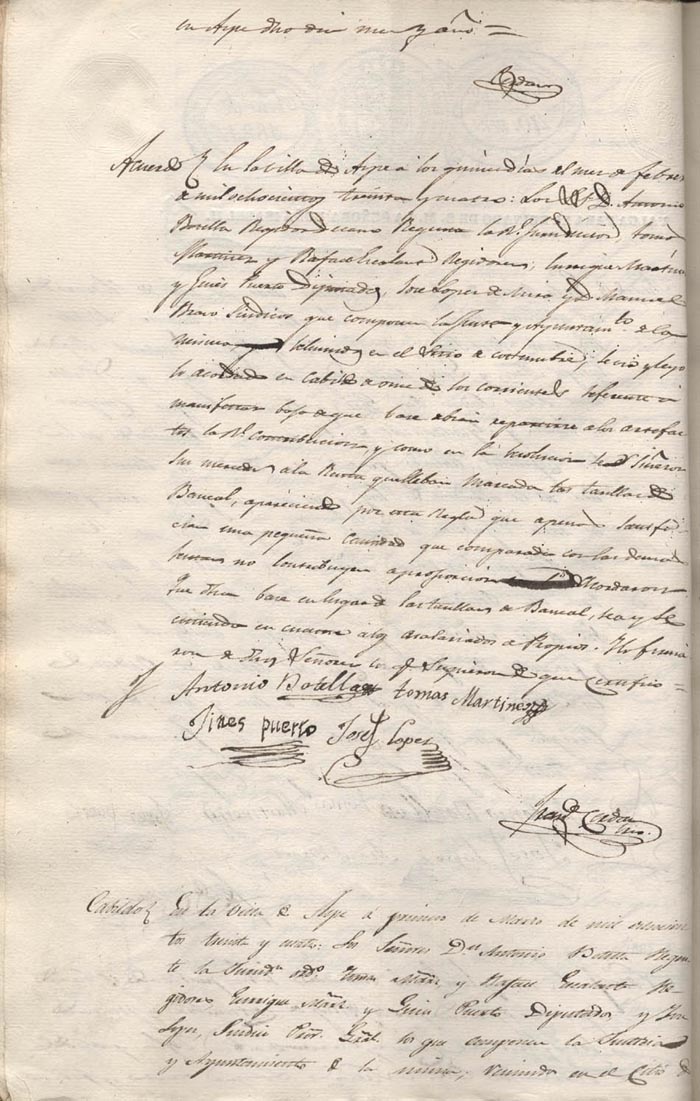 en Aspe dho dia mes y año =
Acuerdo En la Villa de Aspe a los quince dias del mes de febrero
de mil ochocientos treinta y cuatro: Los SS. D. Antonio
Botella Regidor decano Regente la Rl. Jurisdiccion, tomas
Martinez y Rafael Escalant Regidores, Enrique Martinez
y Gines Puerto Diputados, Jose Lopez de y D. Manuel
Bravo Sindicos que componen la Justa. y Ayuntamto. de la
misma reunidos en el Sitio de costumbre, se vio y leyo
lo acordado en Cabildo de once de los corrientes referente a
manifestar bajo de que base debian repartirse a los artefac
tos la Rl. Contribucion y como en la
sus mercedes a la Renta que llevan marcada las taullas de
Bancal, apareciendo por esta Regla que apenas satisfa
cian una pequeña cantidad que comparada con las demas
rentas no Contribuyen a proporcion Acordaron
Que dha base en lugar de las taullas de Bancal, sea y se
entienda en cuanto a los asalariados de Propios. Y lo firma
ron de dhos Señores los qe. Supieron de que Certifico =
Antonio Botella tomas Martinez
Jines puerto Josef Lopez
Cabildo En la Villa de Aspe á primero de Marzo de mil ochocien
tos treinta y cuatro: Los Señores Dn. Antonio Botella Regen
te la Jurisdn. ordª. Tomas Martz. y Rafael Escalante Re
gidores, Enrique Martz. y Gines Puerto Diputados y Jose
Lopez, Sindico Pror. Gral. los que componen la Justicia
y Ayuntamiento de la misma, reunidos en el Citio de